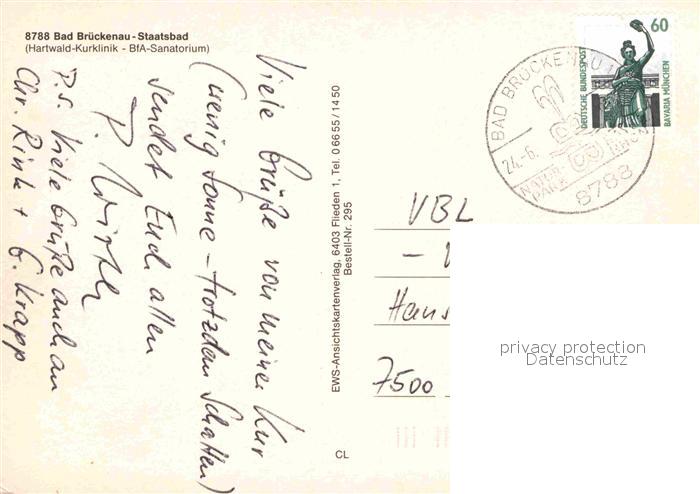 8788 Bad Brückenau - Staatsbad
(Hartwald-Kurklinik - BfA-Sanatorium)
Viele Grüße von meiner Kur
(wenig Sonne - trotzdem Schatten)
sendet Euch allen
P.
P.S. Viele Grüße auch an
Chr. Rink + G. Krapp
EWS-Ansichtskartenverlag, 6403 Flieden 1, Tel. 0 66 55 / 14 50
Bestell-Nr. 295
CL
60
DEUTSCHE BUNDESPOST
BAVARIA MÜNCHEN
BAD BRÜCKENAU 1
24.-6.
NATUR-
PARK
RHÖN
8788
VBL
-
Hans
7500
privacy protection
Datenschutz